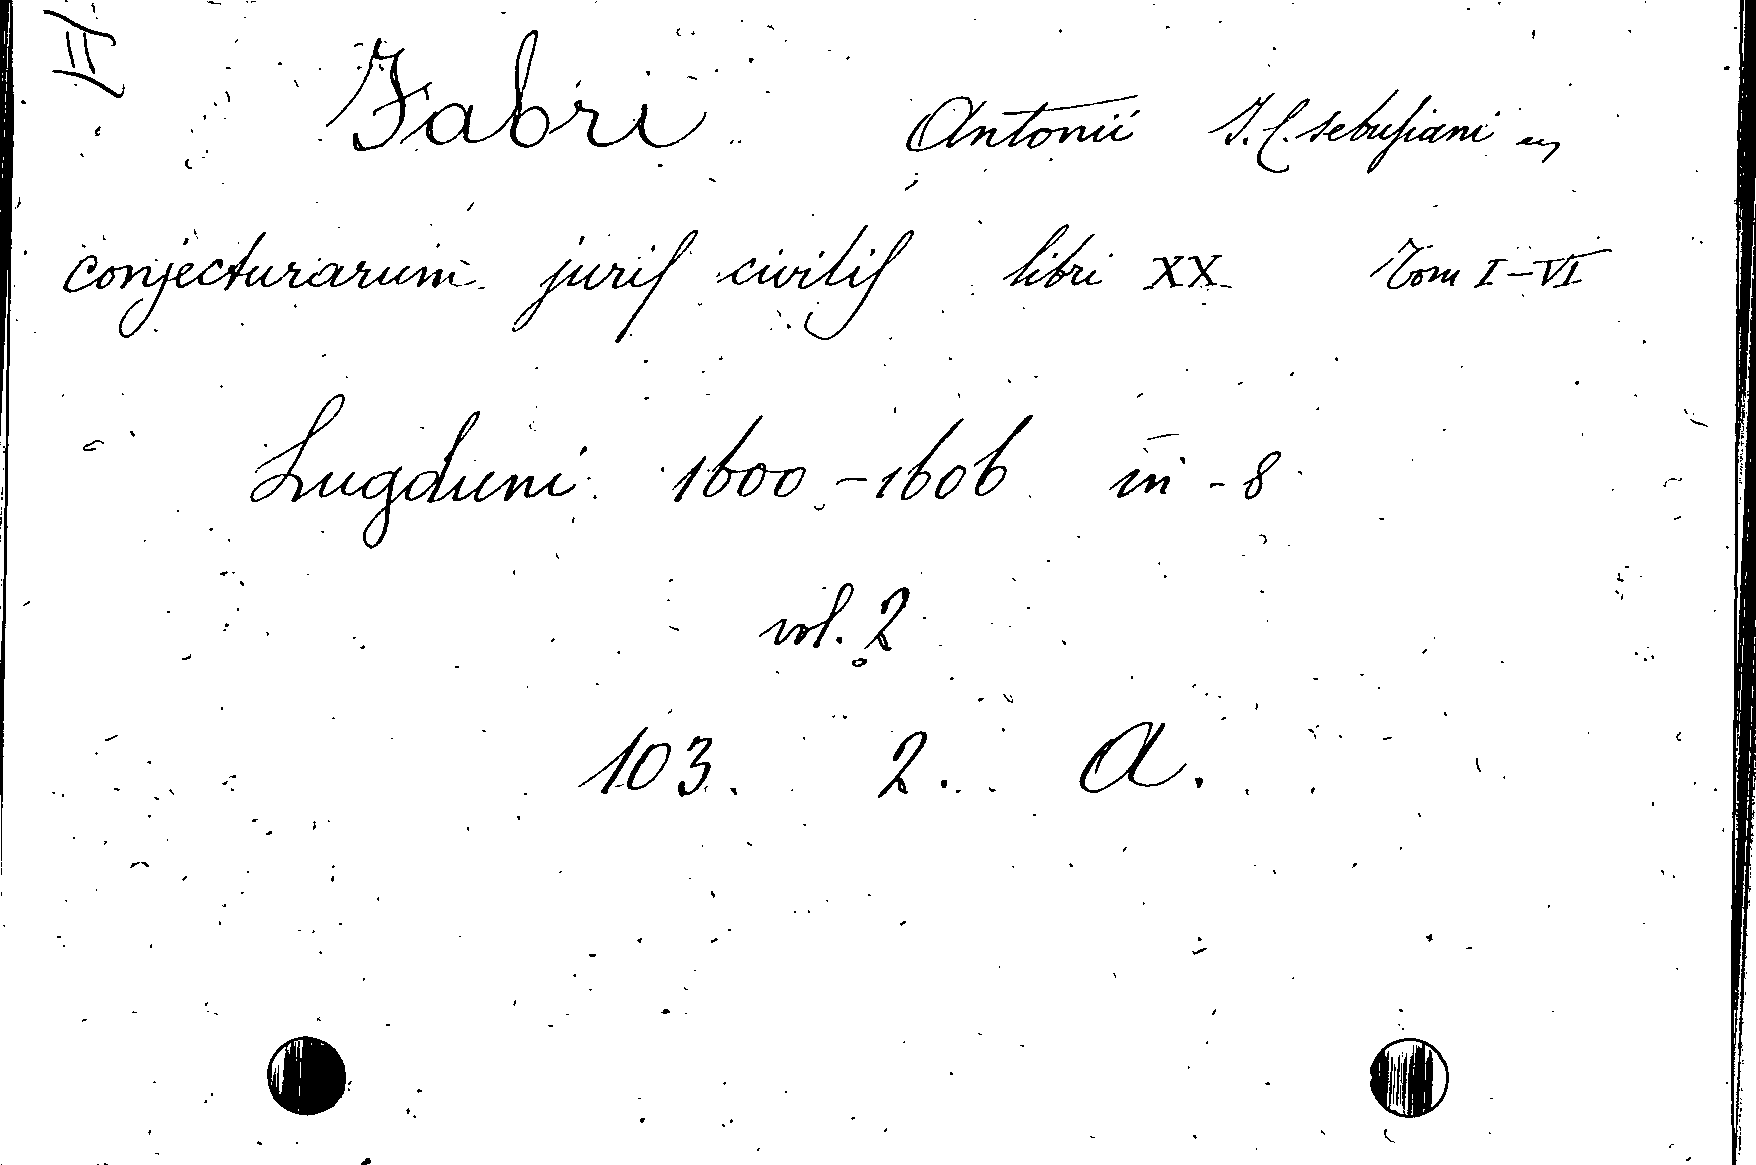 Fabri Antonii J. C. sebusiani
conjecturarum juris civilis libri XX Tom I-VI
Lugduni 1600-1606 in-8
vol. 2
103. 2. A.